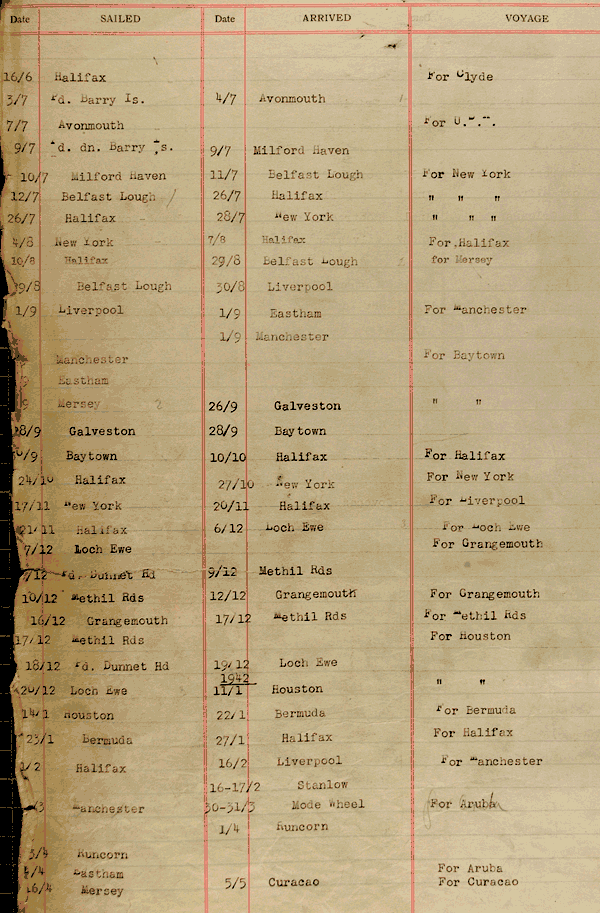 Date SAILED Date ARRIVED VOYAGE
16/6 Halifax For Clyde
3/7 Pd. Barry Is. 4/7 Avonmouth
7/7 Avonmouth For U.
9/7 Pd. dn. Barry Is. 9/7 Milford Haven
10/7 Milford Haven 11/7 Belfast Lough For New York
12/7 Belfast Lough / 26/7 Halifax " " "
26/7 Halifax - 28/7 New York " " "
4/8 New York 7/8 Halifax For Halifax
10/8 Halifax 29/8 Belfast Lough for Mersey
29/8 Belfast Lough 30/8 Liverpool
1/9 Liverpool 1/9 Eastham For Manchester
1/9 Manchester
Manchester For Baytown
9 Eastham
9 Mersey 26/9 Galveston " "
28/9 Galveston 28/9 Baytown
/9 Baytown 10/10 Halifax For Halifax
24/10 Halifax 27/10 New York For New York
17/11 New York 20/11 Halifax For Liverpool
21/11 Halifax 6/12 Loch Ewe For Loch Ewe
7/12 Loch Ewe For Grangemouth
/12 Pd. Dunnet Hd 9/12 Methil Rds
10/12 Methil Rds 12/12 Grangemouth For Grangemouth
16/12 Grangemouth 17/12 Methil Rds For Methil Rds
17/12 Methil Rds For Houston
18/12 Pd. Dunnet Hd 19/12 Loch Ewe
1942
20/12 Loch Ewe 11/1 Houston " "
14/1 Houston 22/1 Bermuda For Bermuda
23/1 Bermuda 27/1 Halifax For Halifax
1/2 Halifax 16/2 Liverpool For Manchester
16-17/2 Stanlow
/3 Manchester 30-31/3 Mode Wheel For Aruba
1/4 Runcorn
3/4 Runcorn
4/4 Eastham For Aruba
16/4 Mersey 5/5 Curacao For Curacao